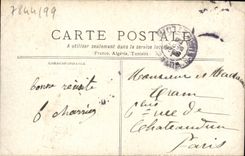 7844/99
CARTE POSTALE
A utiliser seulement dans le service
France, Algérie, Tunisie
CORRESPONDANCE
bonne réussite
Monsieur et Madame
6 bis rue de
Chateaudun
Paris